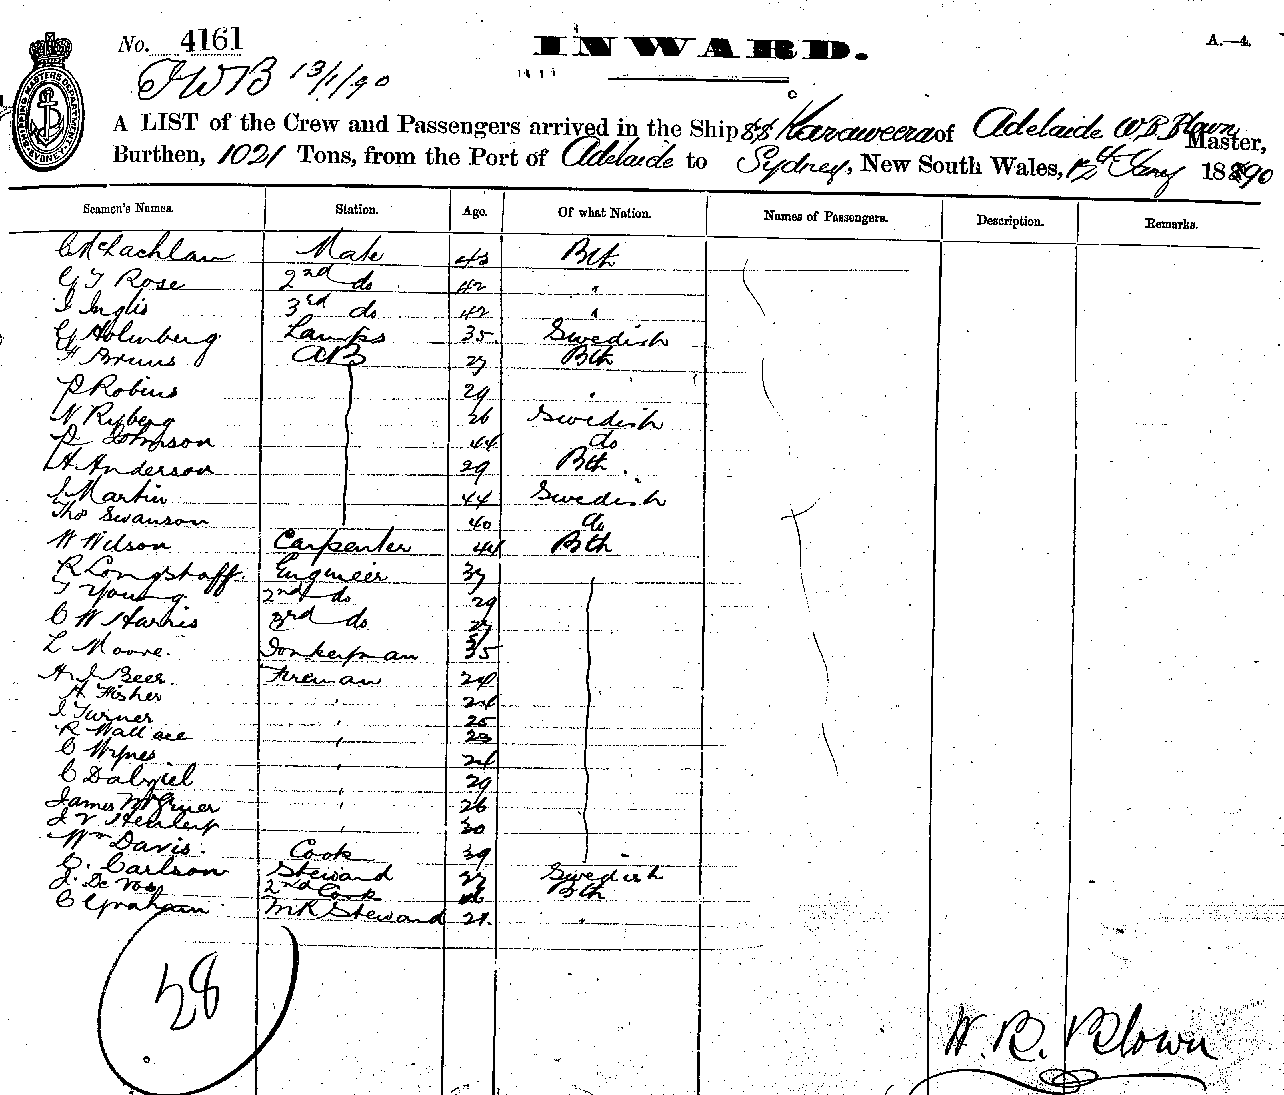 No. 4161 INWARD. A.—4.
JWB 13/1/90
A LIST of the Crew and Passengers arrived in the Ship SS Karaweera of Adelaide W B Blown Master,
Burthen, 1021 Tons, from the Port of Adelaide to Sydney, New South Wales, 12th Jany 1890
Seamen's Names. Station. Age. Of what Nation. Names of Passengers. Description. Remarks.
C McLachlan Mate 43 Bth
G T Rose 2nd do 42 "
J Inglis 3rd do 42 "
G Holmberg Lamps 35 Swedish
F Bruns AB 27 Bth
P Robins 29 "
N Ryberg 26 Swedish
P Johnson 44 do
H Anderson 29 Bth.
J Martin 44 Swedish
Thos Swanson 40 do
W Wilson Carpenter 44 Bth
R Longstaff. Engineer 37
T Young 2nd do 29
C W Harris 3rd do 27
L Moore. Donkeyman 35
H J Beer. Fireman 24
H Fisher " 24
J Turner " 25
R Wallace "
C Wynes "  24
C Dalziel " 29
James " 26
J V " 30
Wm Davis. Cook 39
G. Carlson Steward 27 Swedish
J. De Vos 2nd Cook Bth
C Graham Steward 21. "
28
W. B. Blown